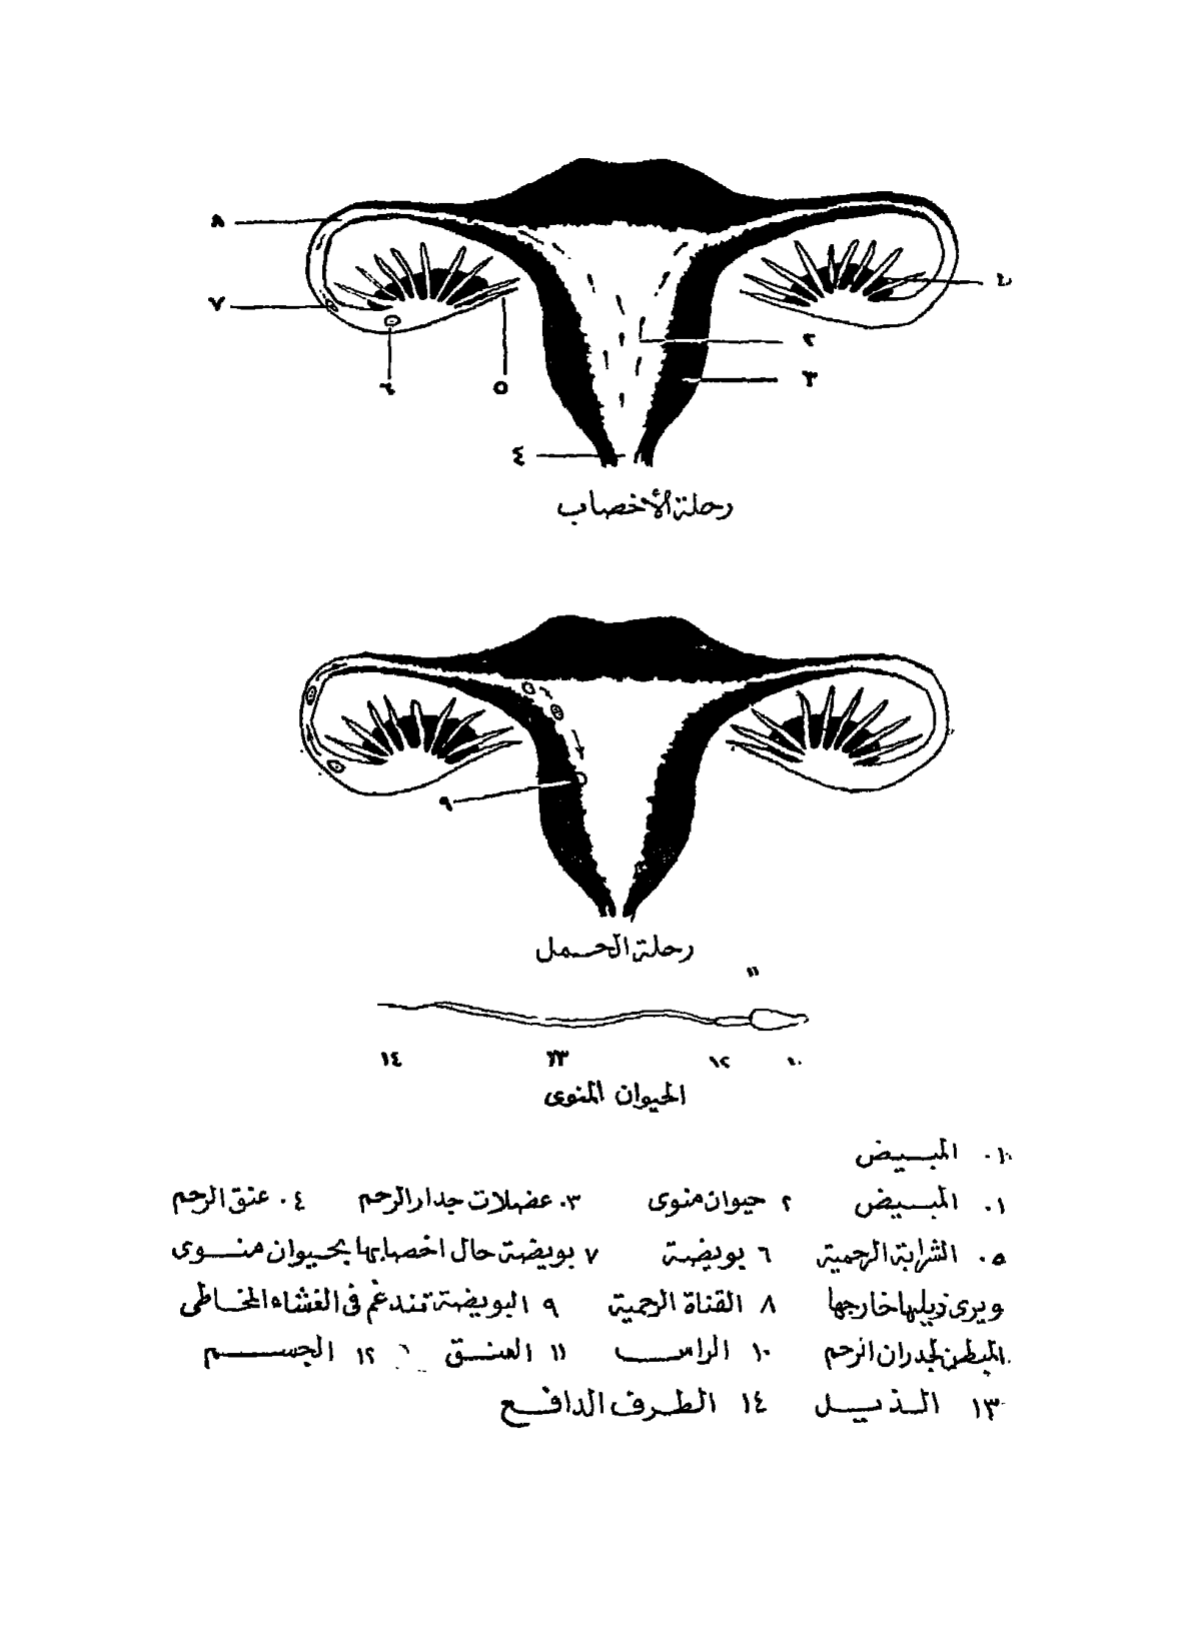 ٨
١
٧
٢
٦
٥
٣
٤
رحلة الأخصاب
٩
رحلة الحمل
١١
١٤
١٣
١٢
١٠
الحيوان المنوى
١. المبيض
١. المبيض ٢ حيوان منوى ٣. عضلات جدار الرحم ٤. عنق الرحم
٥. الشرابة الرحمية ٦ بويضة ٧ بويضة حال اخصابها بحيوان منوى
ويرى ذيلها خارجها ٨ القناة الرحمية ٩ البويضة تندغم فى الغشاء المخاطى
المبطن لجدران الرحم ١٠ الراس ١١ العنق ١٢ الجسم
١٣ الذيل ١٤ الطرف الدافع